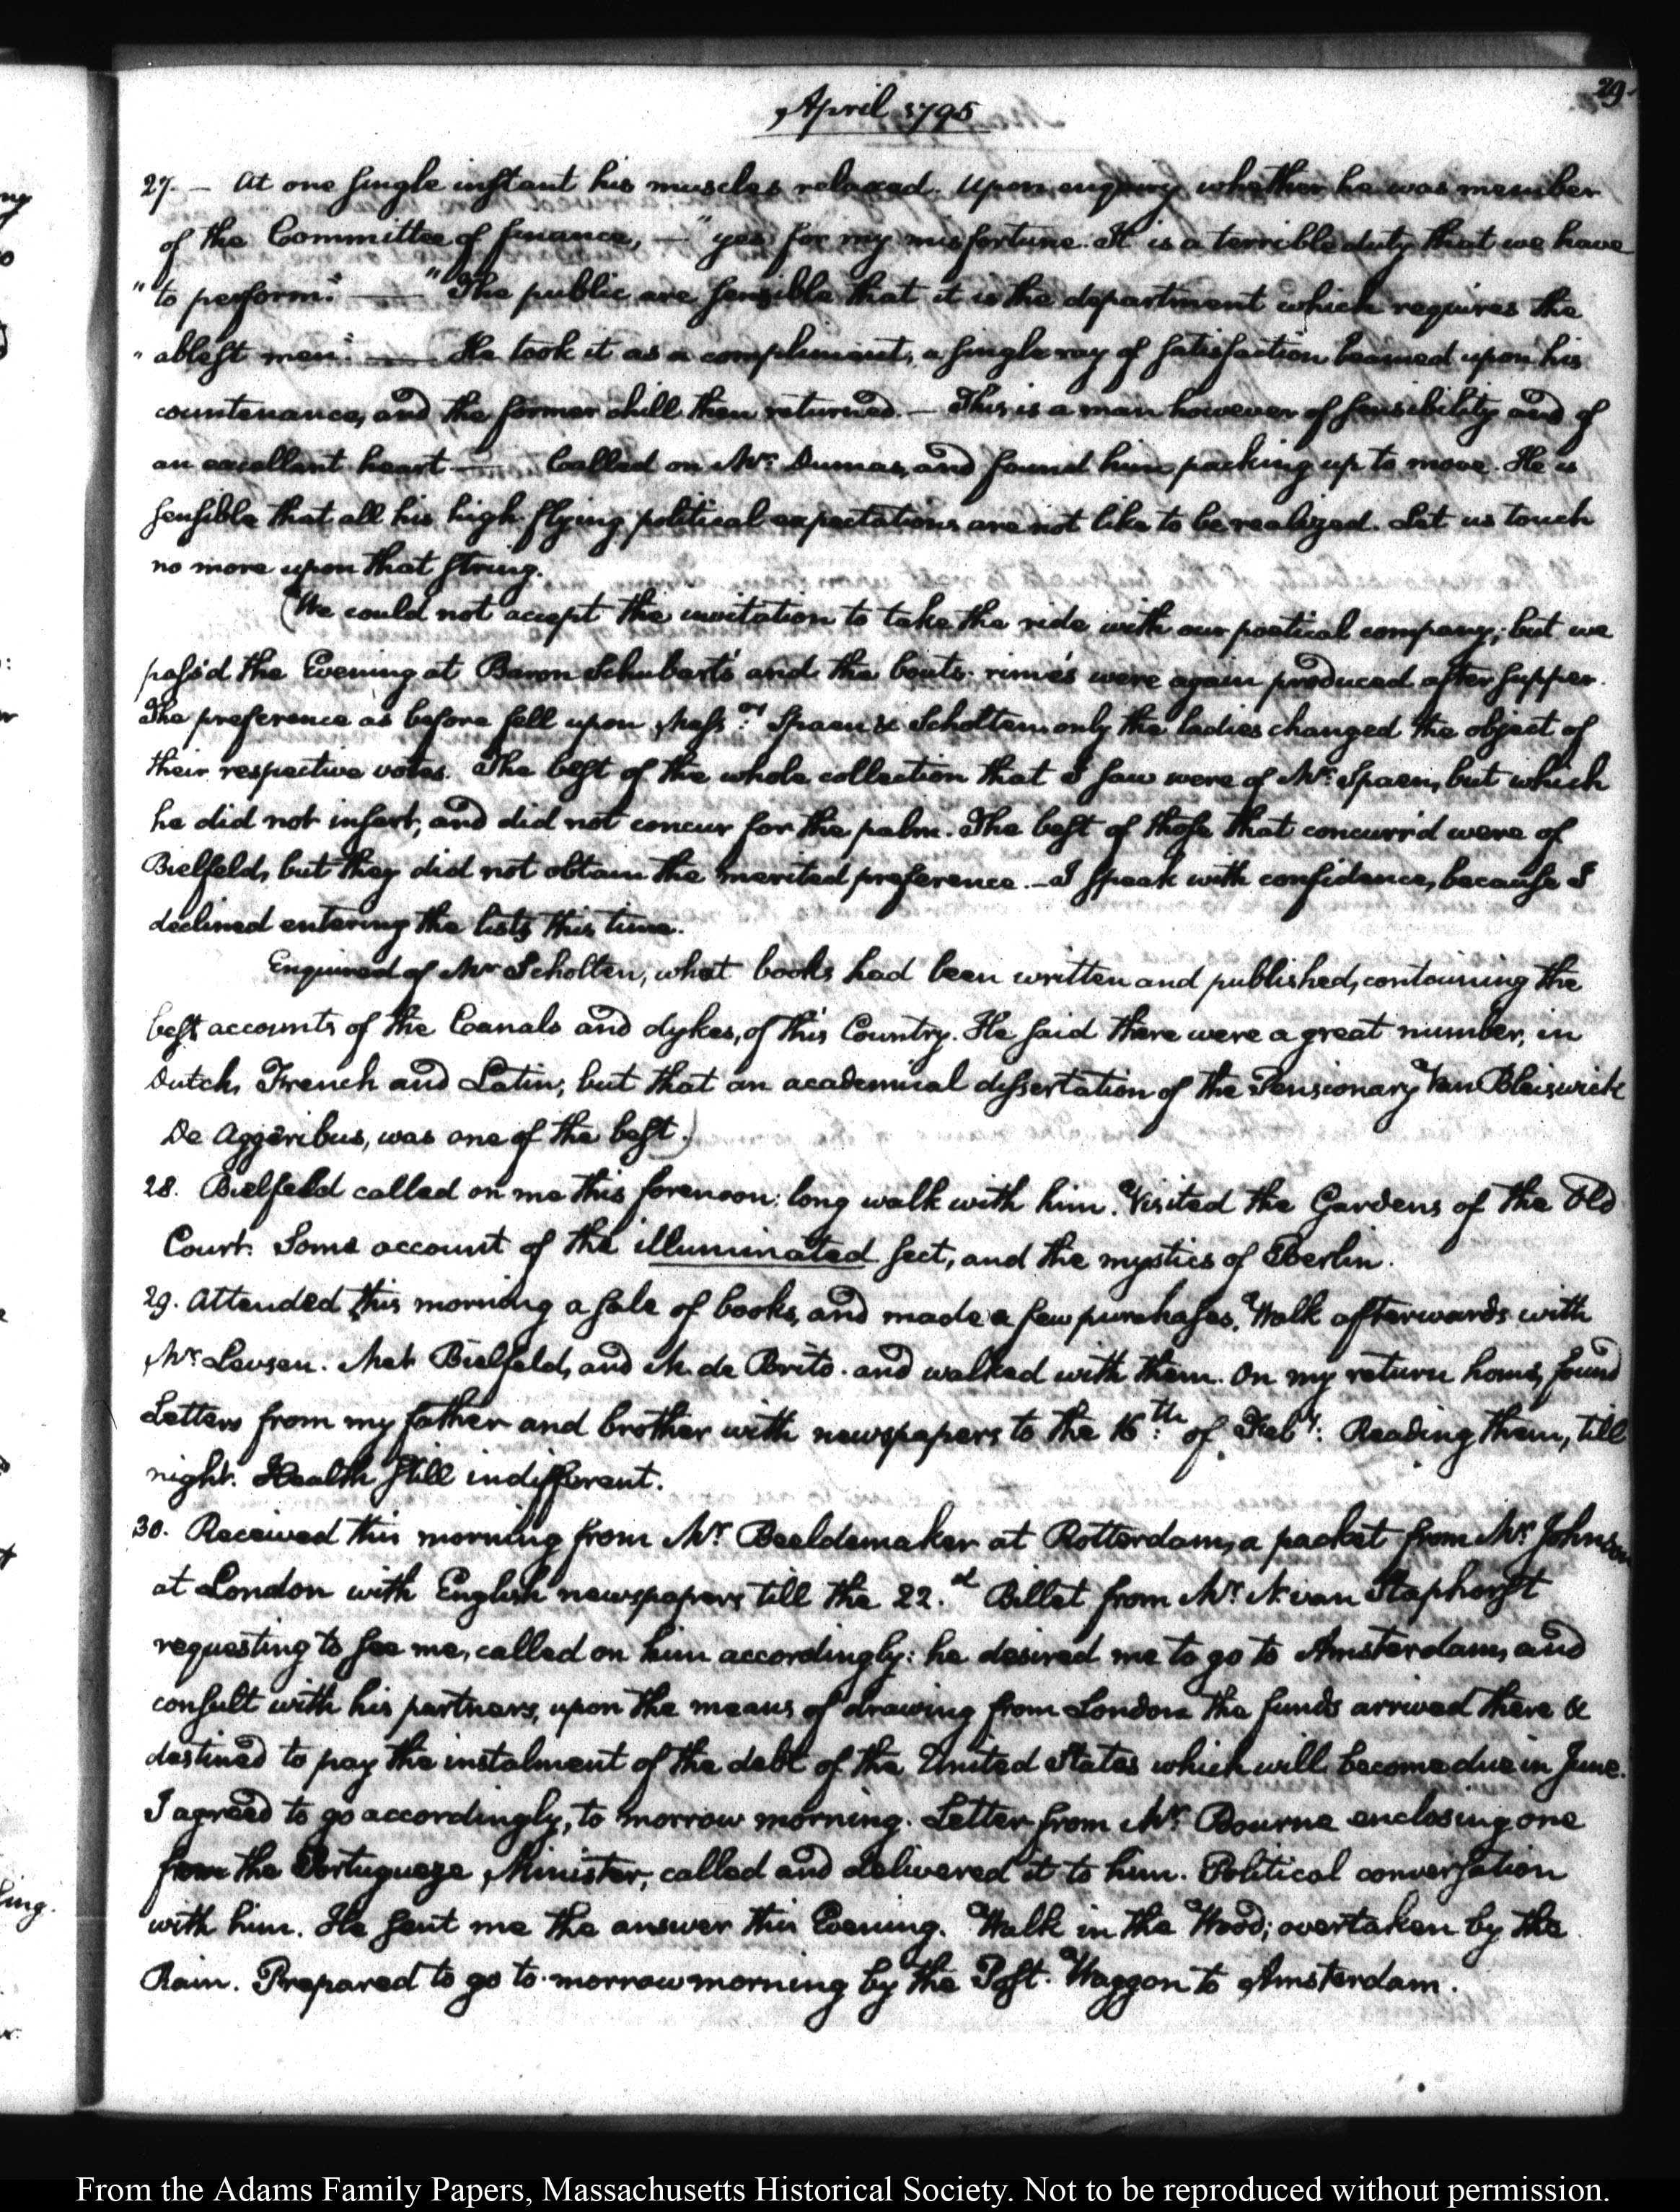 29.
April 1795
27. — At one single instant his muscles relaxed. Upon enquiry whether he was member
of the Committee of finance, — "yes for my misfortune. It is a terrible duty that we have
"to perform." — "The public are sensible that it is the department which requires the
"ablest men." — He took it as a compliment, a single ray of satisfaction beamed upon his
countenance, and the former chill then returned. — This is a man however of sensibility and of
an excellent heart — Called on Mr. Dumas, and found him packing up to move. He is
sensible that all his high flying political expectations are not like to be realized. Let us touch
no more upon that string.
(We could not accept the invitation to take the ride with our poetical company; but we
pass'd the Evening at Baron Schubart's and the bouts-rimés were again produced after supper.
The preference as before fell upon Mess:rs Spaen & Scholten only the ladies changed the object of
their respective votes. The best of the whole collection that I saw were of Mr. Spaen, but which
he did not insert, and did not concur for the palm. The best of those that concurr'd were of
Bielfeld, but they did not obtain the merited preference. — I speak with confidence, because I
declined entering the lists this time.
Enquired of Mr Scholten, what books had been written and published, containing the
best accounts of the Canals and dykes, of this Country. He said there were a great number, in
Dutch, French and Latin; but that an academical dissertation of the Pensionary Van Bleiswick
De Aggeribus, was one of the best.)
28. Bielfeld called on me this forenoon: long walk with him. Visited the Gardens of the Old
Court. Some account of the illuminated sect, and the mystics of Berlin.
29. Attended this morning a sale of books, and made a few purchases. Walk afterwards with
Mr. Levsen. Met Bielfeld, and M. de Brito. and walked with them. On my return home, found
Letters from my father and brother with newspapers to the 16:th of Feby: Reading them, till
night. Health still indifferent.
30. Received this morning from Mr. Beeldemaker at Rotterdam, a packet from Mr. Johnson
at London with English newspapers till the 22.d Billet from Mr. N. van Staphorst
requesting to see me, called on him accordingly: he desired me to go to Amsterdam, and
consult with his partners, upon the means of drawing from London the funds arrived there &
destined to pay the instalment of the debt of the United States which will become due in June.
I agreed to go accordingly, to morrow morning. Letter from Mr. Bourne enclosing one
from the Portugueze Minister; called and delivered it to him. Political conversation
with him. He sent me the answer this Evening. Walk in the Wood; overtaken by the
Rain. Prepared to go to-morrow morning by the Post-Waggon to Amsterdam.
From the Adams Family Papers, Massachusetts Historical Society. Not to be reproduced without permission.